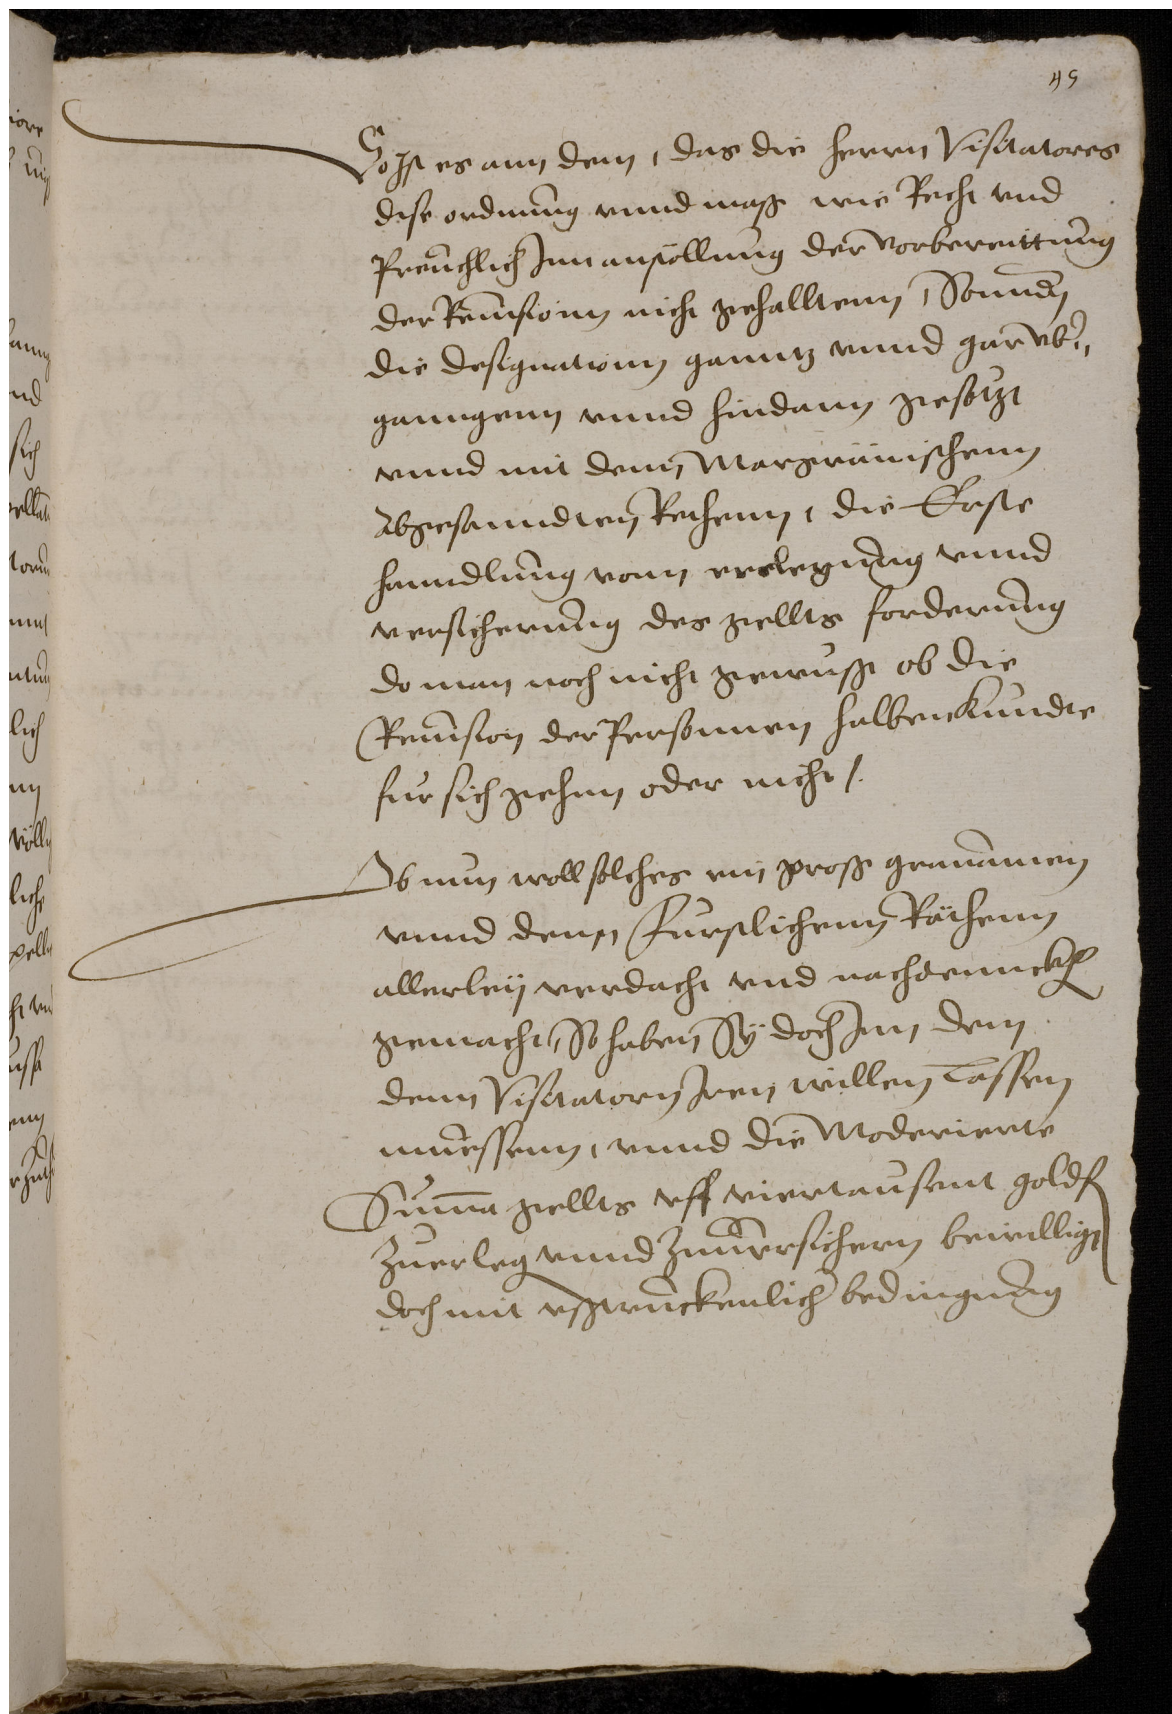 45
So Ist es ann dem, das die herrn Visitatores
dise ordnung vnnd mass wie Recht vnd
Preuchlich Inn anstöllung der vorbereittung
der Reuisionn nicht gehalltenn, Sonndern
die designationn ganntz vnnd gar vber
ganngenn vnnd hindann gesötzt
vnnd mit denn Marggräuischenn
Abgesanndten Rethenn, die Erste
hanndlung vonn erelegung vnnd
versicherung des gellts forderung
do man noch nicht gewusst ob die
Reuision der Personnen halben kundte
fur sich gehnn oder nicht /.
Ob nun woll solches ein gross grauamen
vnnd denn Furstlichenn Räthenn
allerleÿ verdacht vnd nachdennckhen
gemacht, So haben Sÿ doch Inn dem
denn Visitatorn Iren willen lassen
muessenn, vnnd die Moderierte
Summa gellts vff viertausent goldfl
Zuerleg vnnd Zuuersichern bewilligt
doch mit vsstruckenlicher bedingung